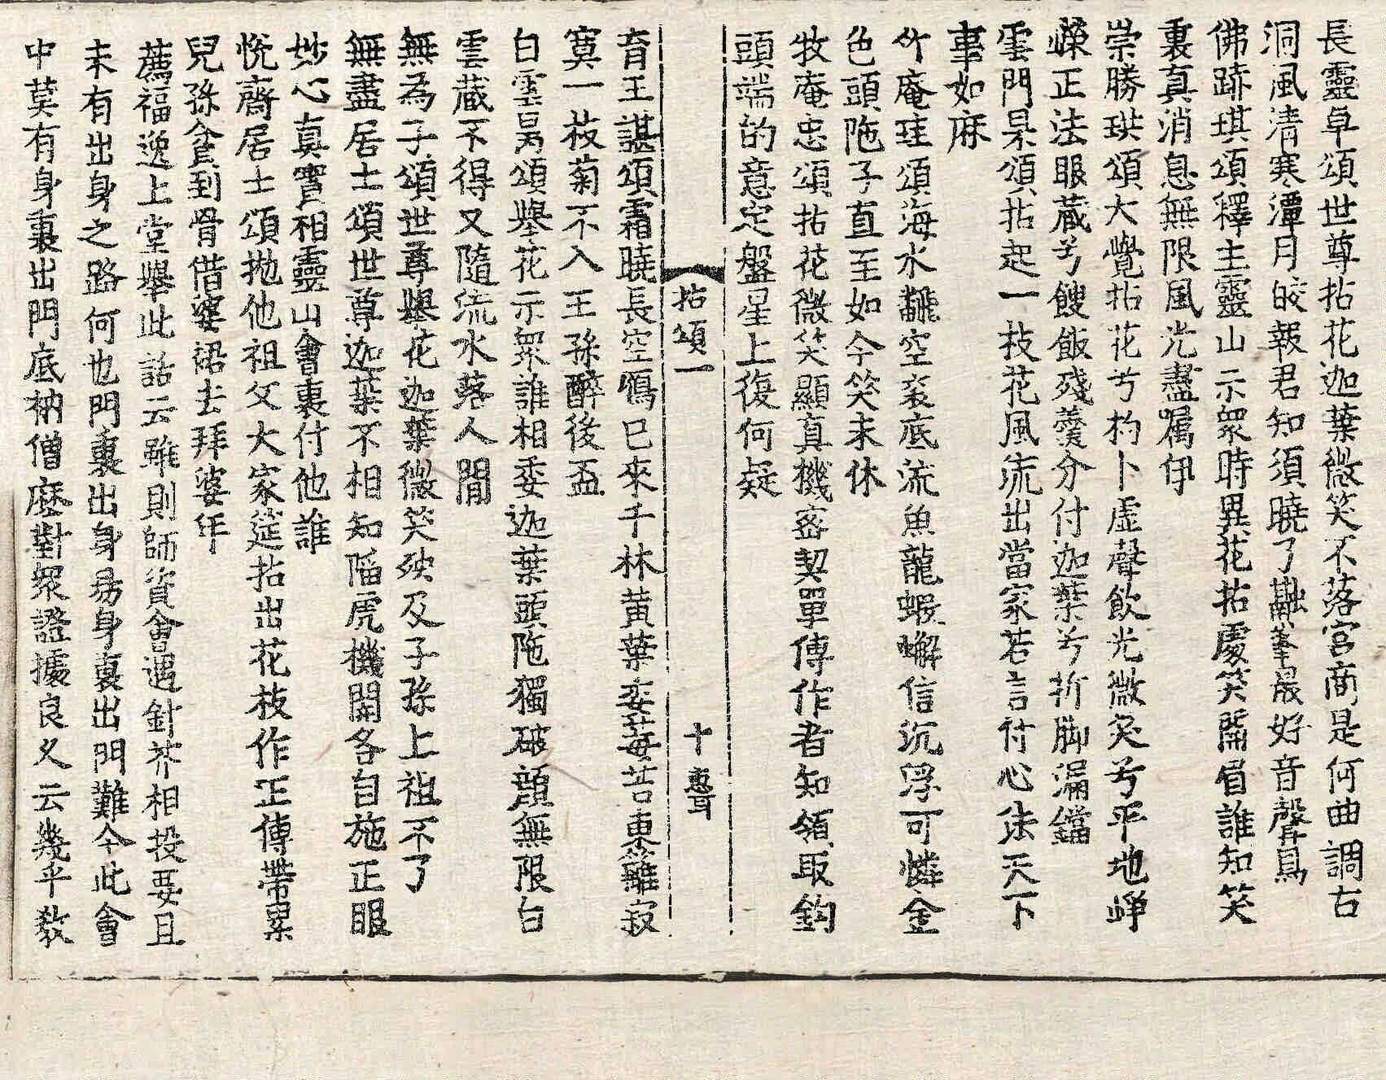 長靈卓頌世尊拈花迦葉微笑不落宮商是何曲調古
洞風清寒潭月皎報君知須曉了鷲峯最好音聲鳥
佛跡琪頌釋主靈山示衆時異花拈處笑開眉誰知笑
裏真消息無限風光盡属伊
崇勝珙頌大覺拈花兮杓卜虛聲飲光微笑兮平地崢
嶸正法眼藏兮餿飯殘羹分付迦葉兮折脚漏鐺
雲門杲頌拈起一枝花風流出當家若言付心法天下
事如麻
竹庵珪頌海水飜空衮底流魚龍蝦蠏信沉浮可憐金
色頭陁子直至如今笑未休
牧庵忠頌拈花微笑顯真機密契單傳作者知領取鈎
頭端的意定盤星上復何疑
拈頌一　十　惠耳
育王諶頌霜曉長空鴈已來千林黃葉委莓苔東籬寂
寞一枝菊不入王孫醉後盃
白雲昺頌舉花示衆誰相委迦葉頭陁獨破顔無限白
雲藏不得又隨流水落人間
無為子頌世尊舉花迦葉微笑殃及子孫上祖不了
無盡居士頌世尊迦葉不相知陥虎機開各自施正眼
妙心真實相靈山會裏付他誰
恱齋居士頌抛他祖父大家筵拈出花枝作正傳帶累
兒孫貧到骨借婆裙去拜婆年
薦福逸上堂舉此話云雖則師資會遇針芥相投要且
未有出身之路何也門裏出身易身裏出門難今此會
中莫有身裏出門底衲僧麽對衆證據良久云幾乎教